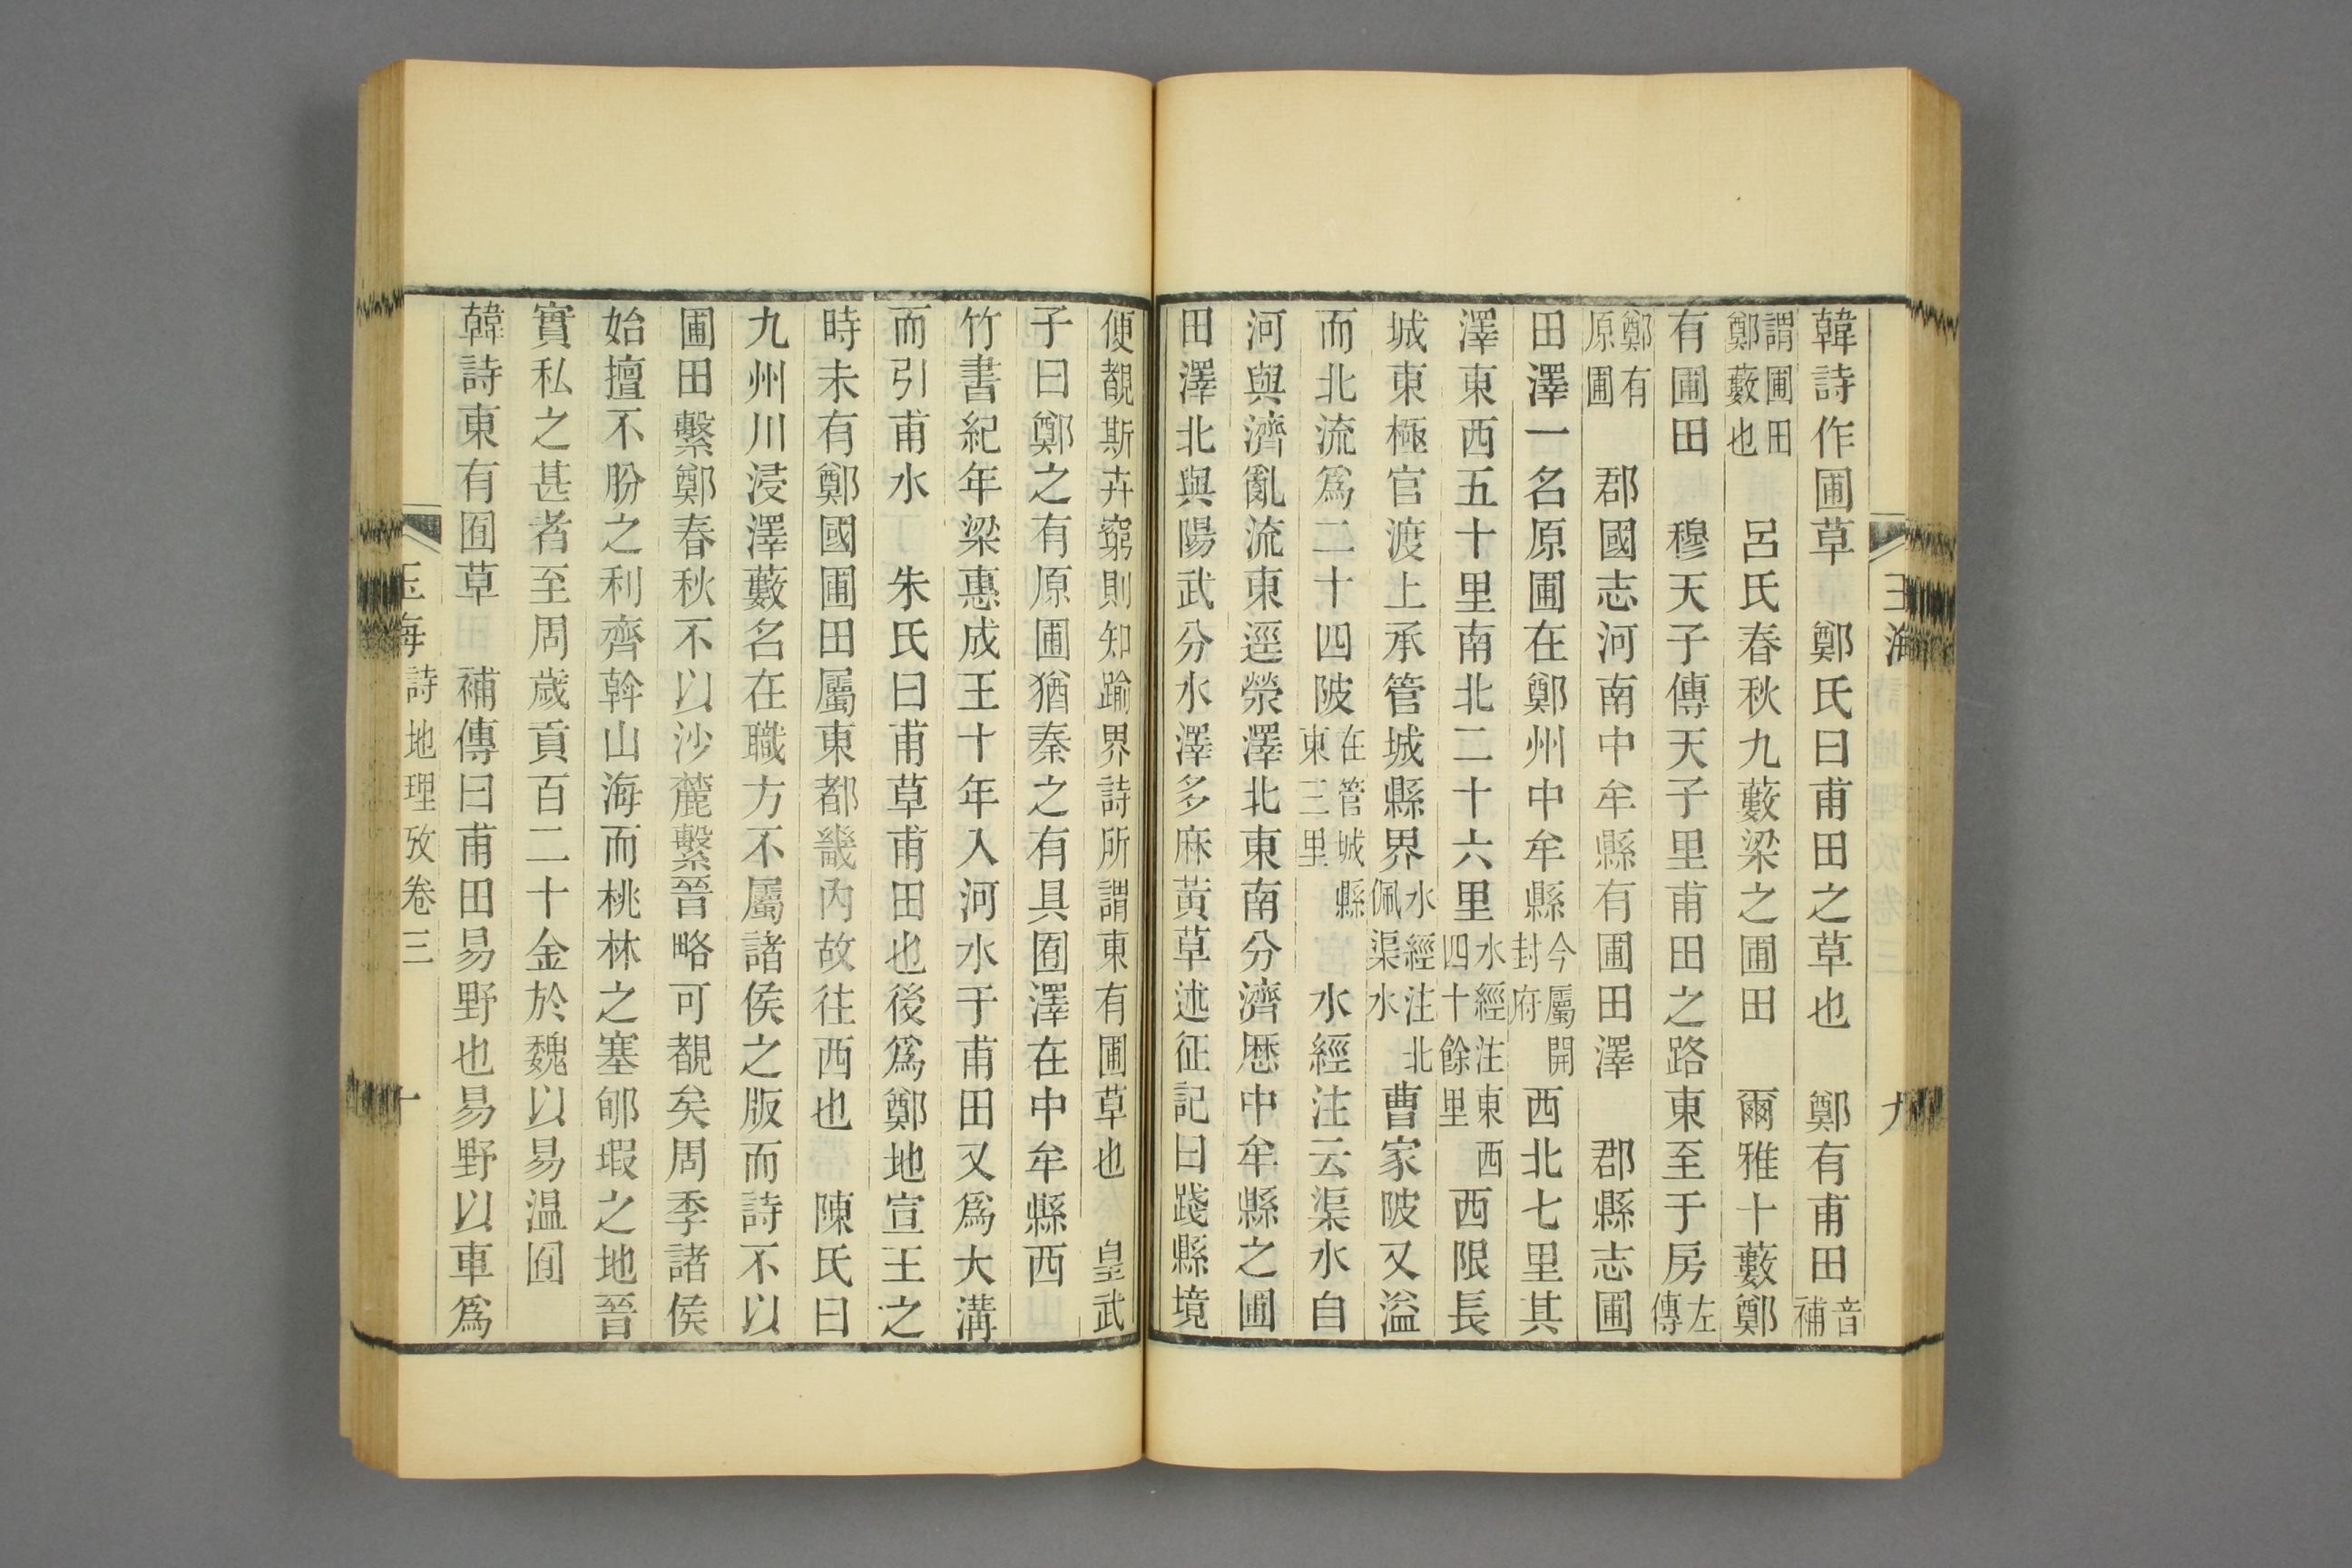 韓詩作圃草　鄭氏曰甫田之草也　鄭有甫田音補
謂圃田鄭藪也　呂氏春秋九藪梁之圃田　爾雅十藪鄭
有圃田　穆天子傳天子里甫田之路東至于房左傳
鄭有原圃　郡國志河南中牟縣有圃田澤　郡縣志圃
田澤一名原圃在鄭州中牟縣今屬開封府西北七里其
澤東西五十里南北二十六里水經注東西四十餘里西限長
城東極官渡上承管城縣界水經注北佩渠水曹家陂又溢
而北流爲二十四陂在管城縣東三里　水經注云渠水自
河與濟亂流東逕滎澤北東南分濟歷中牟縣之圃
田澤北與陽武分水澤多麻黃草述征記曰踐縣境
便覩斯卉窮則知踰界詩所謂東有圃草也　皇武
子曰鄭之有原圃猶秦之有具囿澤在中牟縣西
竹書紀年梁惠成王十年入河水于甫田又爲大溝
而引甫水　朱氏曰甫草甫田也後爲鄭地宣王之
時未有鄭國圃田屬東都畿內故往西也　陳氏曰
九州川浸澤藪名在職方不屬諸侯之版而詩不以
圃田繫鄭春秋不以沙麓繫晉略可覩矣周季諸侯
始擅不朌之利齊斡山海而桃林之塞郇瑕之地晉
實私之甚者至周歲貢百二十金於魏以易溫囿
韓詩東有囿草　補傳曰甫田易野也易野以車爲
玉海詩地理攷卷三　十
玉海　九